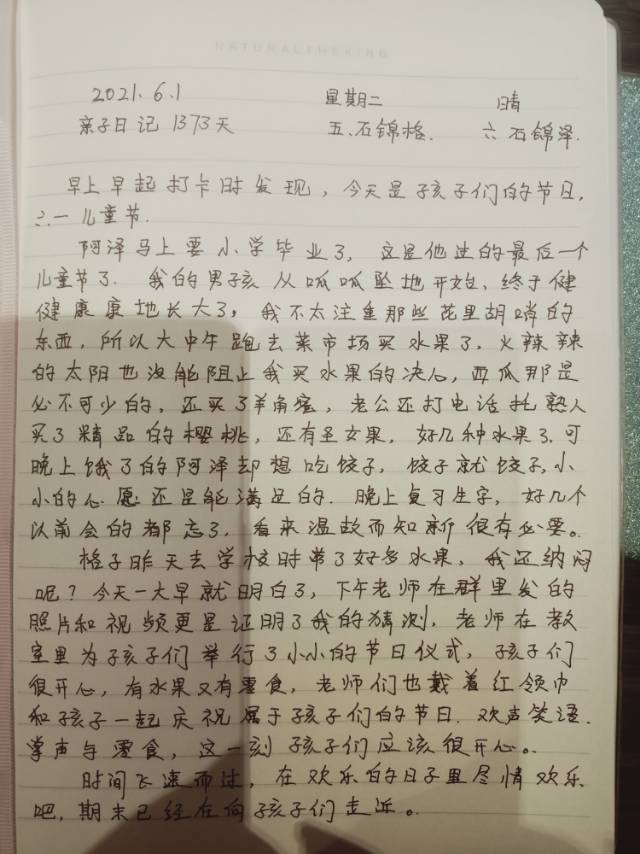 NATURALTHEKING
2021.6.1 星期二 晴
亲子日记 1373天 五.石锦格. 六 石锦泽.
早上早起打卡时发现，今天是孩子们的节日，
六一儿童节.
阿泽马上要小学毕业了，这是他过的最后一个
儿童节了. 我的男子孩从呱呱坠地开始、终于健
健康康地长大了，我不太注重那些花里胡哨的
东西，所以大中午跑去菜市场买水果了，火辣辣
的太阳也没能阻止我买水果的决心，西瓜那是
必不可少的，还买了羊角蜜，老公还打电话托熟人
买了精品的樱桃，还有圣女果，好几种水果了.可
晚上饿了的阿泽却想吃饺子，饺子就饺子，小
小的心愿还是能满足的. 晚上复习生字，好几个
以前会的都忘了，看来温故而知新很有必要。
格子昨天去学校时带了好多水果，我还纳闷
呢？今天一大早就明白了，下午老师在群里发的
照片和视频更是证明了我的猜测，老师在教
室里为孩子们举行了小小的节日仪式，孩子们
很开心，有水果又有零食，老师们也戴着红领巾
和孩子一起庆祝属于孩子们的节日. 欢声笑语.
掌声与零食，这一刻孩子们应该很开心。
时间飞速而过，在欢乐的日子里尽情欢乐
吧，期末已经在向孩子们走近。